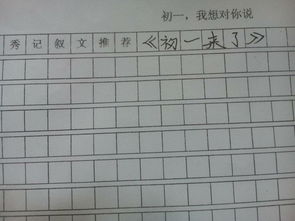 初一，我想对你说
秀记叙文推荐《初一来了》